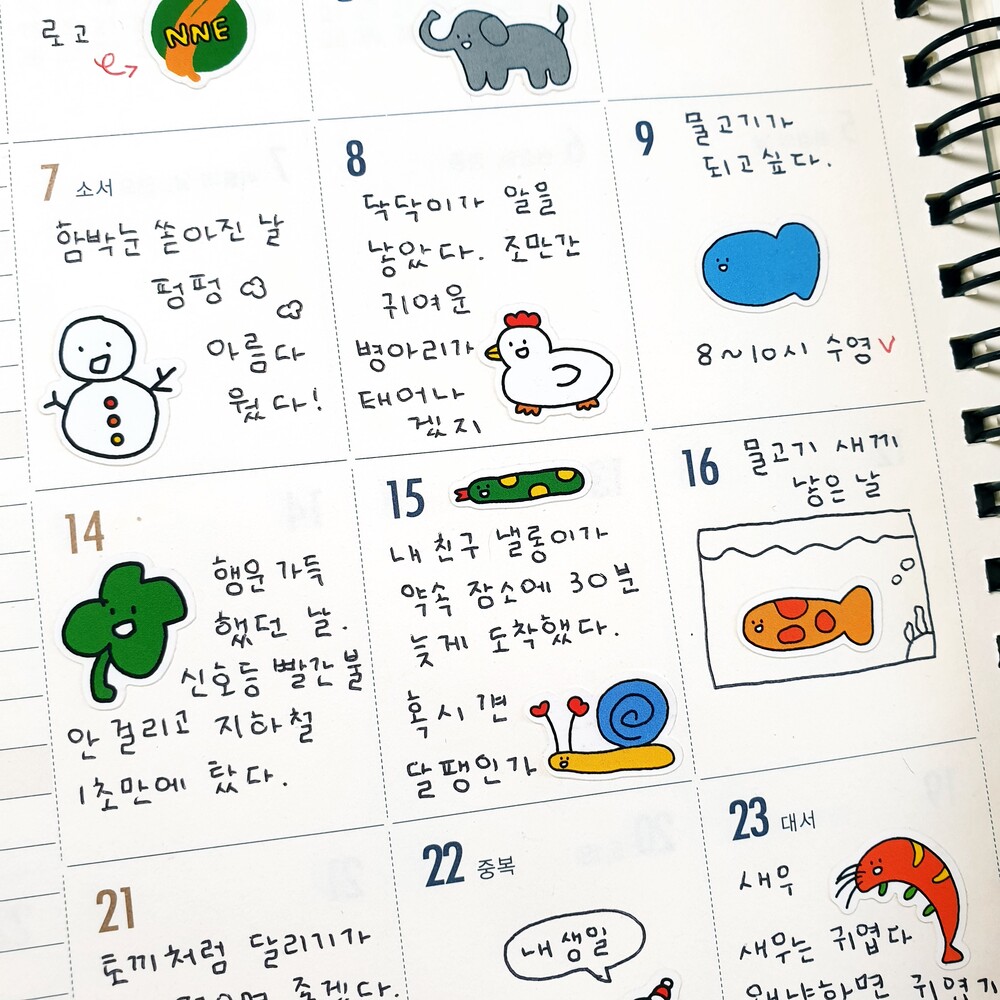 로고
NNE
7 소서
함박눈 쏟아진 날
펑펑
아름다
웠다!
8
닥닥이가 알을
낳았다. 조만간
귀여운
병아리가
태어나
겠지
9
물고기가
되고싶다.
8~10시 수영
14
행운 가득
했던 날.
신호등 빨간불
안 걸리고 지하철
1초만에 탔다.
15
내 친구 낼롱이가
약속 장소에 30분
늦게 도착했다.
혹시 걘
달팽인가
16
물고기 새끼
낳은 날
21
토끼처럼 달리기가
좋겠다.
22 중복
내 생일
23 대서
새우
새우는 귀엽다
왜냐하면 귀엽기